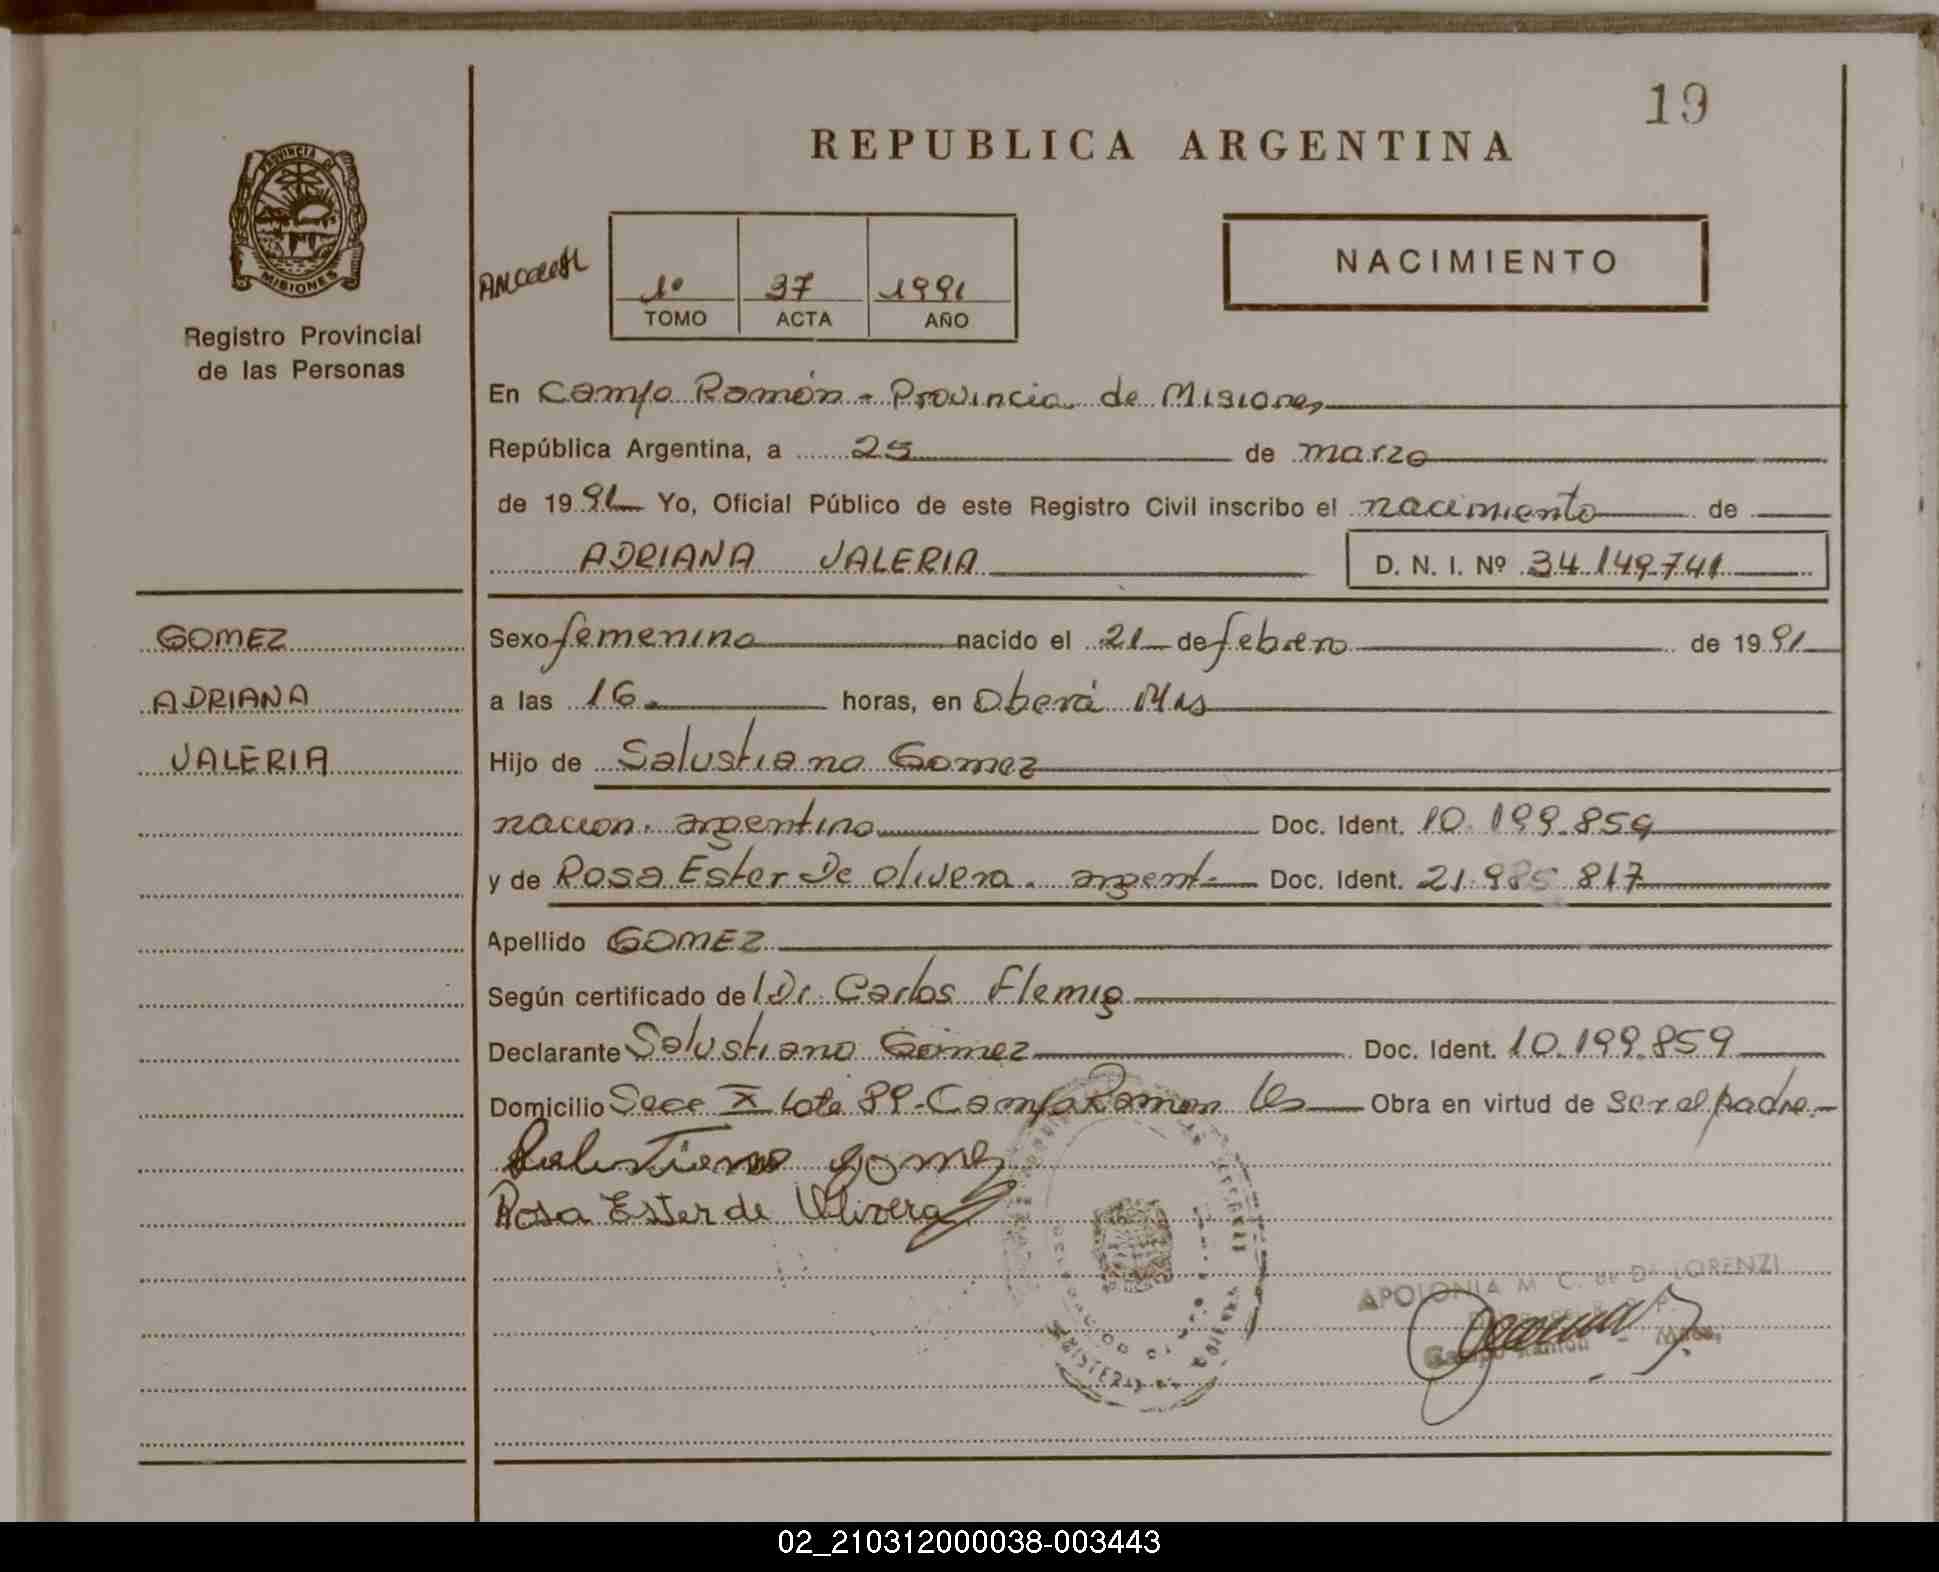 19
REPUBLICA ARGENTINA
PROVINCIA DE
MISIONES
Registro Provincial
de las Personas
1º 37 1991
TOMO ACTA AÑO
NACIMIENTO
En Campo Ramón - Provincia de Misiones
República Argentina, a 25 de marzo
de 1991 Yo, Oficial Público de este Registro Civil inscribo el nacimiento de
ADRIANA VALERIA D. N. I. Nº 34.149.741
GOMEZ
ADRIANA
VALERIA
Sexo femenino nacido el 21 de febrero de 1991
a las 16. horas, en Oberá Mis
Hijo de Salustiano Gomez
nacion. argentino Doc. Ident. 10.199.859
y de Rosa Ester De Olivera. argent. Doc. Ident. 21.985.817
Apellido GOMEZ
Según certificado del Dr. Carlos Flemig
Declarante Salustiano Gomez Doc. Ident. 10.199.859
Domicilio Secc X Lote 89 - Campo Ramon Obra en virtud de ser el padre.-
Salustiano gomez
Rosa Ester de Olivera
APOLONIA M. C. de DE LORENZI
Campo Ramón - Mnes.
02_210312000038-003443